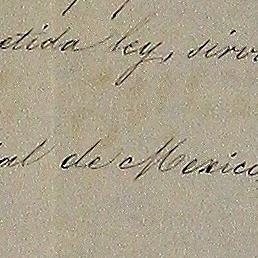 etida ley, sirv
al de Mexico,